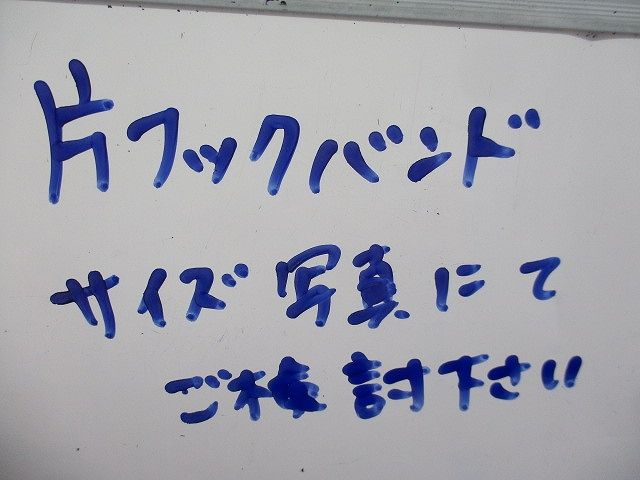 片フックバンド
サイズ写真にて
ご検討下さい